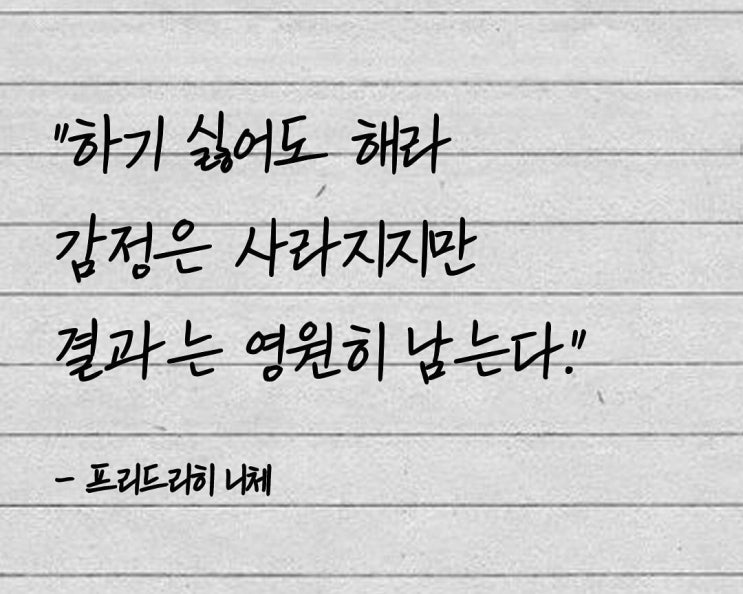 "하기 싫어도 해라
감정은 사라지지만
결과는 영원히 남는다."
- 프리드리히 니체